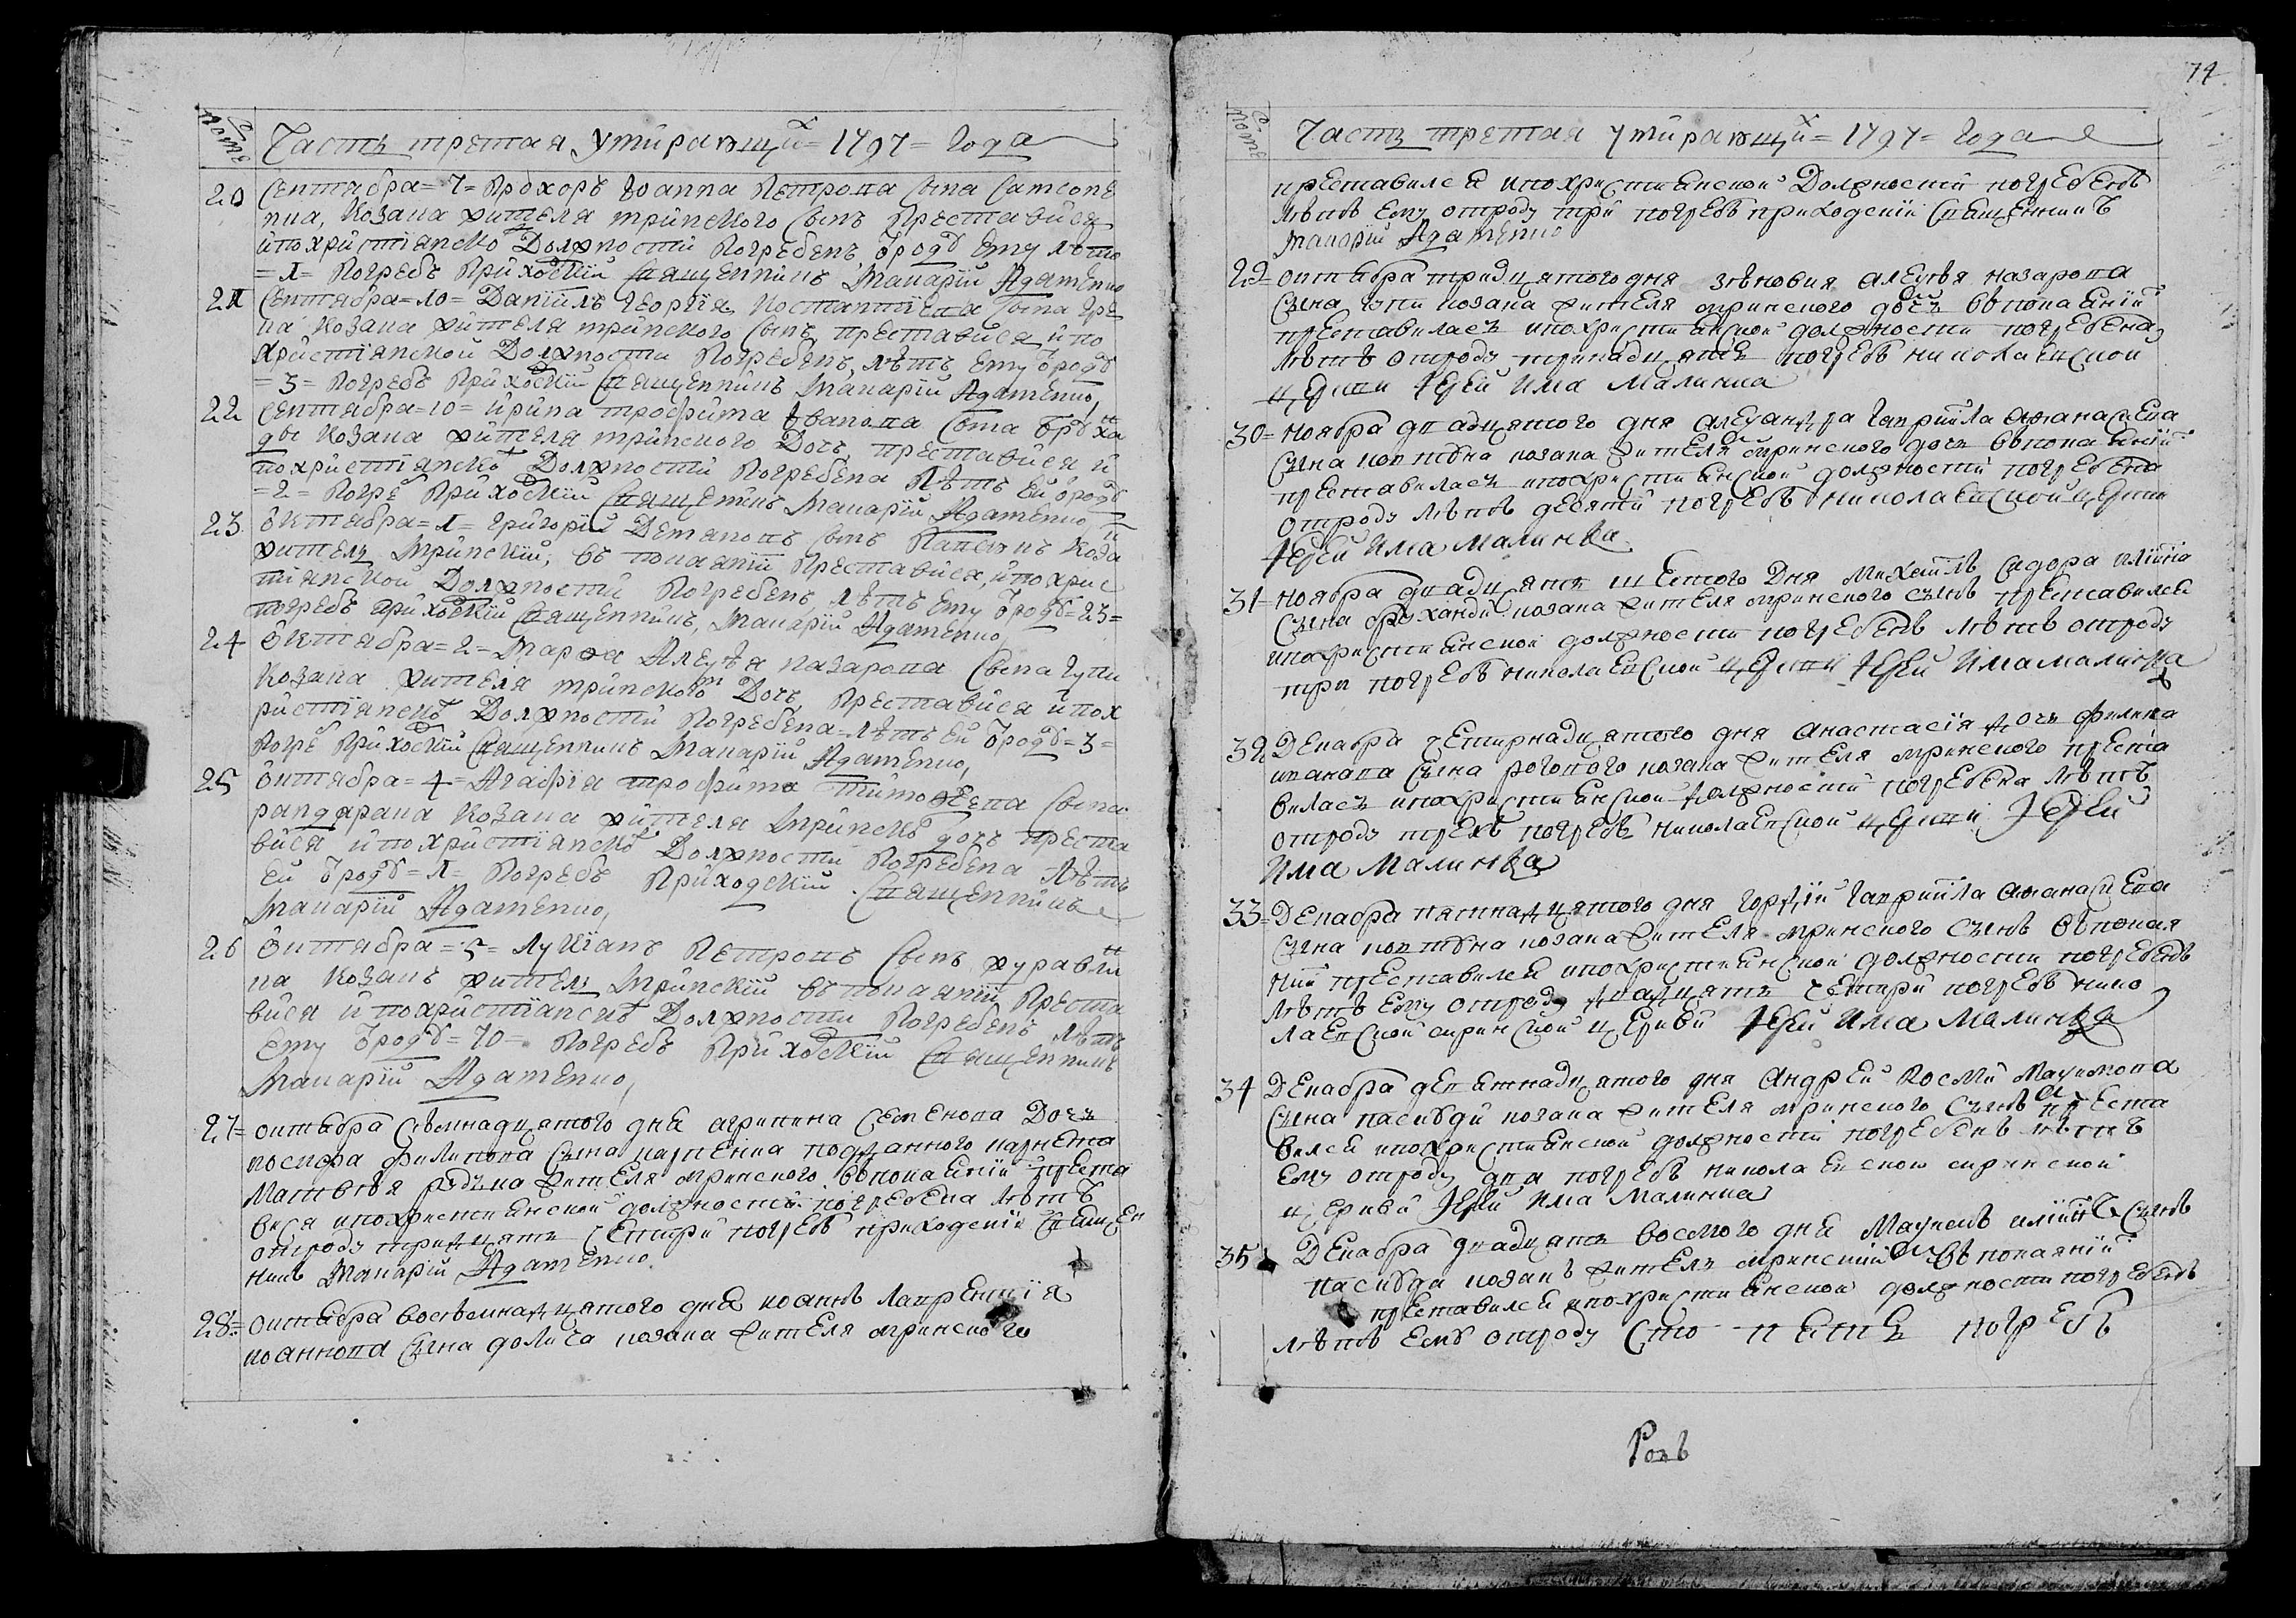 74
Часть третая Умирающих = 1797 = Года
20 Сентября = 7 = Прохоръ Иоанна Петрова сына Самсоне
нка, Козака жителя мринского сынъ Преставися
и по християнско Должности Погребенъ, Ѿроду ему лето
= 1 = Погребъ Приходский Священникъ Макарий Адаменко
21 Сентября = 10 = Даниилъ Георгия Костантиева сына Гре
ка Козака жителя мринского сынъ преставися и по
Християнской Должности Погребенъ, лѣтъ ему Ѿроду
= 3 = Погребъ Приходский Священникъ Макарий Адаменко,
22 Сентября = 10 = Ирина трофима Иванова сына
Козака жителя мринского Дочь преставися и
по християнско Должности Погребена Лѣтъ Ей Ѿроду
= 2 = Погре Приходский Священикъ Макарий Адаменко,
23 Октября = 1 = Григорий Демяновъ сынъ Козакъ
житель Мринский, въ покаянии Преставися, и по хрис
тиянской Должности Погребенъ, лѣтъ ему Ѿроду = 23 =
погребъ приходский Священникъ, Макарий Адаменко,
24 Октября = 2 = Марфа Алеѯѣя назарова Сына Гупи
Козака жителя мринского Дочь, Преставися и по х
ристиянско Должности Погребена лѣтъ Ей Ѿроду = 3 =
Погре Приходский Священникъ Макарий Адаменко,
25 Октября = 4 = Агафия трофима тимофеева Сына
Козака жителя Мринско дочь преста
вися и по християнско Должности Погребена Лѣтъ
Ей Ѿроду = 1 = Погребъ Приходский Священникъ
Макарий Адаменко,
26 Октября = 5 = Лукианъ Петровъ Сынъ журавли
на Козакъ житель Мринский въ покаянии Преста
вися и по християнско Должности Погребенъ Лѣтъ
Ему Ѿроду = 70 = Погребъ Приходский Священникъ
Макарий Адаменко,
27 = октября семнадцятого дня агрипина Семенова Дочь
филипова сына подданного
Матвѣя жителя мринского въ покаянии преста
вися и по християнской должности погребена лѣтъ
отроду тридцять четири погребъ приходский Священ
никъ Макарий Адаменко.
28 = октября восѣмнадцятого дня иоаннъ Лаврентия
иоаннова сына козака жителя мринского
Часть третая умирающих = 1797 = Года
преставился и по християнской Должности погребенъ
лѣтъ ему отроду три погребъ приходский священникъ
Макарий Адаменко
29 = октября тридцятого дня зѣновия алеѯѣя назарова
сына Гупи козака жителя мринского дочь въ покаянии
преставилась и по християнской должности погребена
лѣтъ отроду тринадцять погребъ николаевской
церкви Иерей Има Малинка
30 = ноября двадцятого дня алеѯандра Гавриила афанасиева
сына козака жителя мринского дочь въ покаянии
преставилась и по християнской должности погребена
отроду лѣтъ десяти погребъ николаевской церкви
Иерей Има Малинка
31 = ноября двадцять шестого Дня Михаилъ Сидора илиина
сына козака жителя мринского сынъ преставился
и по християнской должности погребенъ лѣтъ отроду
три погребъ николаевской церкви Иерей Има Малинка
32 Декабря четирнадцятого дня Анастасия дочь филипа
иванова сына козака жителя мринского преста
вилась и по християнской должности погребена лѣтъ
отроду трехъ погребъ николаевской церкви Иерей
Има Малинка
33 = Декабря пятнадцятого дня Гордий Гавриила афанасиева
сына козака жителя мринского сынъ въ покая
нии преставился и по християнской должности погребенъ
лѣтъ ему отроду двадцять четири погребъ нико
лаевской мринской церкви Иерей Има Малинка
34 Декабря девятнадцятого дня Андрей Косми Маѯимова
сына пасибди козака жителя мринского сынъ преста
вился и по християнской должности погребенъ лѣтъ
ему отроду два погребъ николаевской мринской
церкви Иерей Има Малинка
35 Декабря двадцять восмого дня Маѯимъ илиинъ сынъ
пасибда козакъ житель мринский въ покаянии
преставился и по християнской должности погребенъ
лѣтъ ему отроду сто пять погребъ